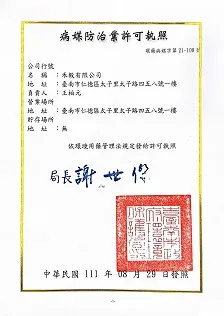 病媒防治業許可執照
環藥病媒字第21-108號
公司行號
名稱：禾毅有限公司
地址：臺南市仁德區太子里太子路四五八號一樓
負責人：王柏元
營業場所
地址：臺南市仁德區太子里太子路四五八號一樓
貯存場所
地址：無
依環境用藥管理法規定發給許可執照
局長 謝世傑
中華民國 111 年 08 月 29 日發照